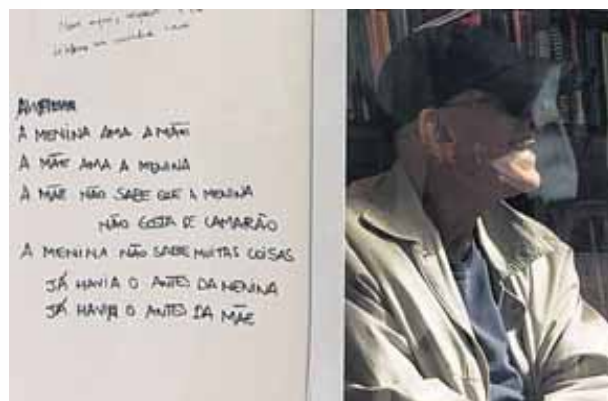 A MENINA AMA A MÃE
A MÃE AMA A MENINA
A MÃE NÃO SABE QUE A MENINA
NÃO GOSTA DE CAMARÃO
A MENINA NÃO SABE MUITAS COISAS
JÁ HAVIA O ANTES DA MENINA
JÁ HAVIA O ANTES DA MÃE